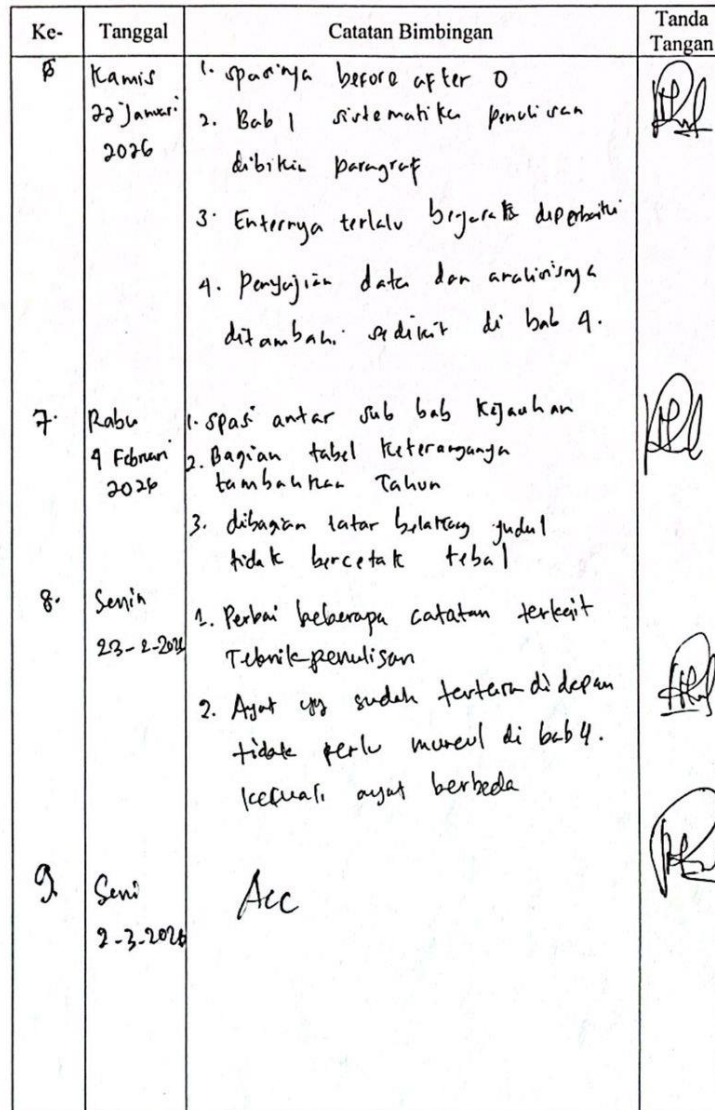 Ke- Tanggal Catatan Bimbingan Tanda Tangan
Kamis 1. spasinya before after 0
22 Januari 2. Bab 1 sistematika penulisan
2026 dibikin paragraf
3. Enternya terlalu diperbaiki
4. Penyajian data dan analisisnya
ditambahi sedikit di bab 4.
7. Rabu 1. Spasi antar sub bab kejauhan
4 Februari 2. Bagian tabel keteranganya
2026 tambahkan Tahun
3. dibagian latar belakang judul
tidak bercetak tebal
8. Senin 1. Perbai beberapa catatan terkait
23-2-2026 Teknik penulisan
2. Ayat yg sudah tertera di depan
tidak perlu muncul di bab 4.
kecuali ayat berbeda
9. Seni Acc
2-3-2026